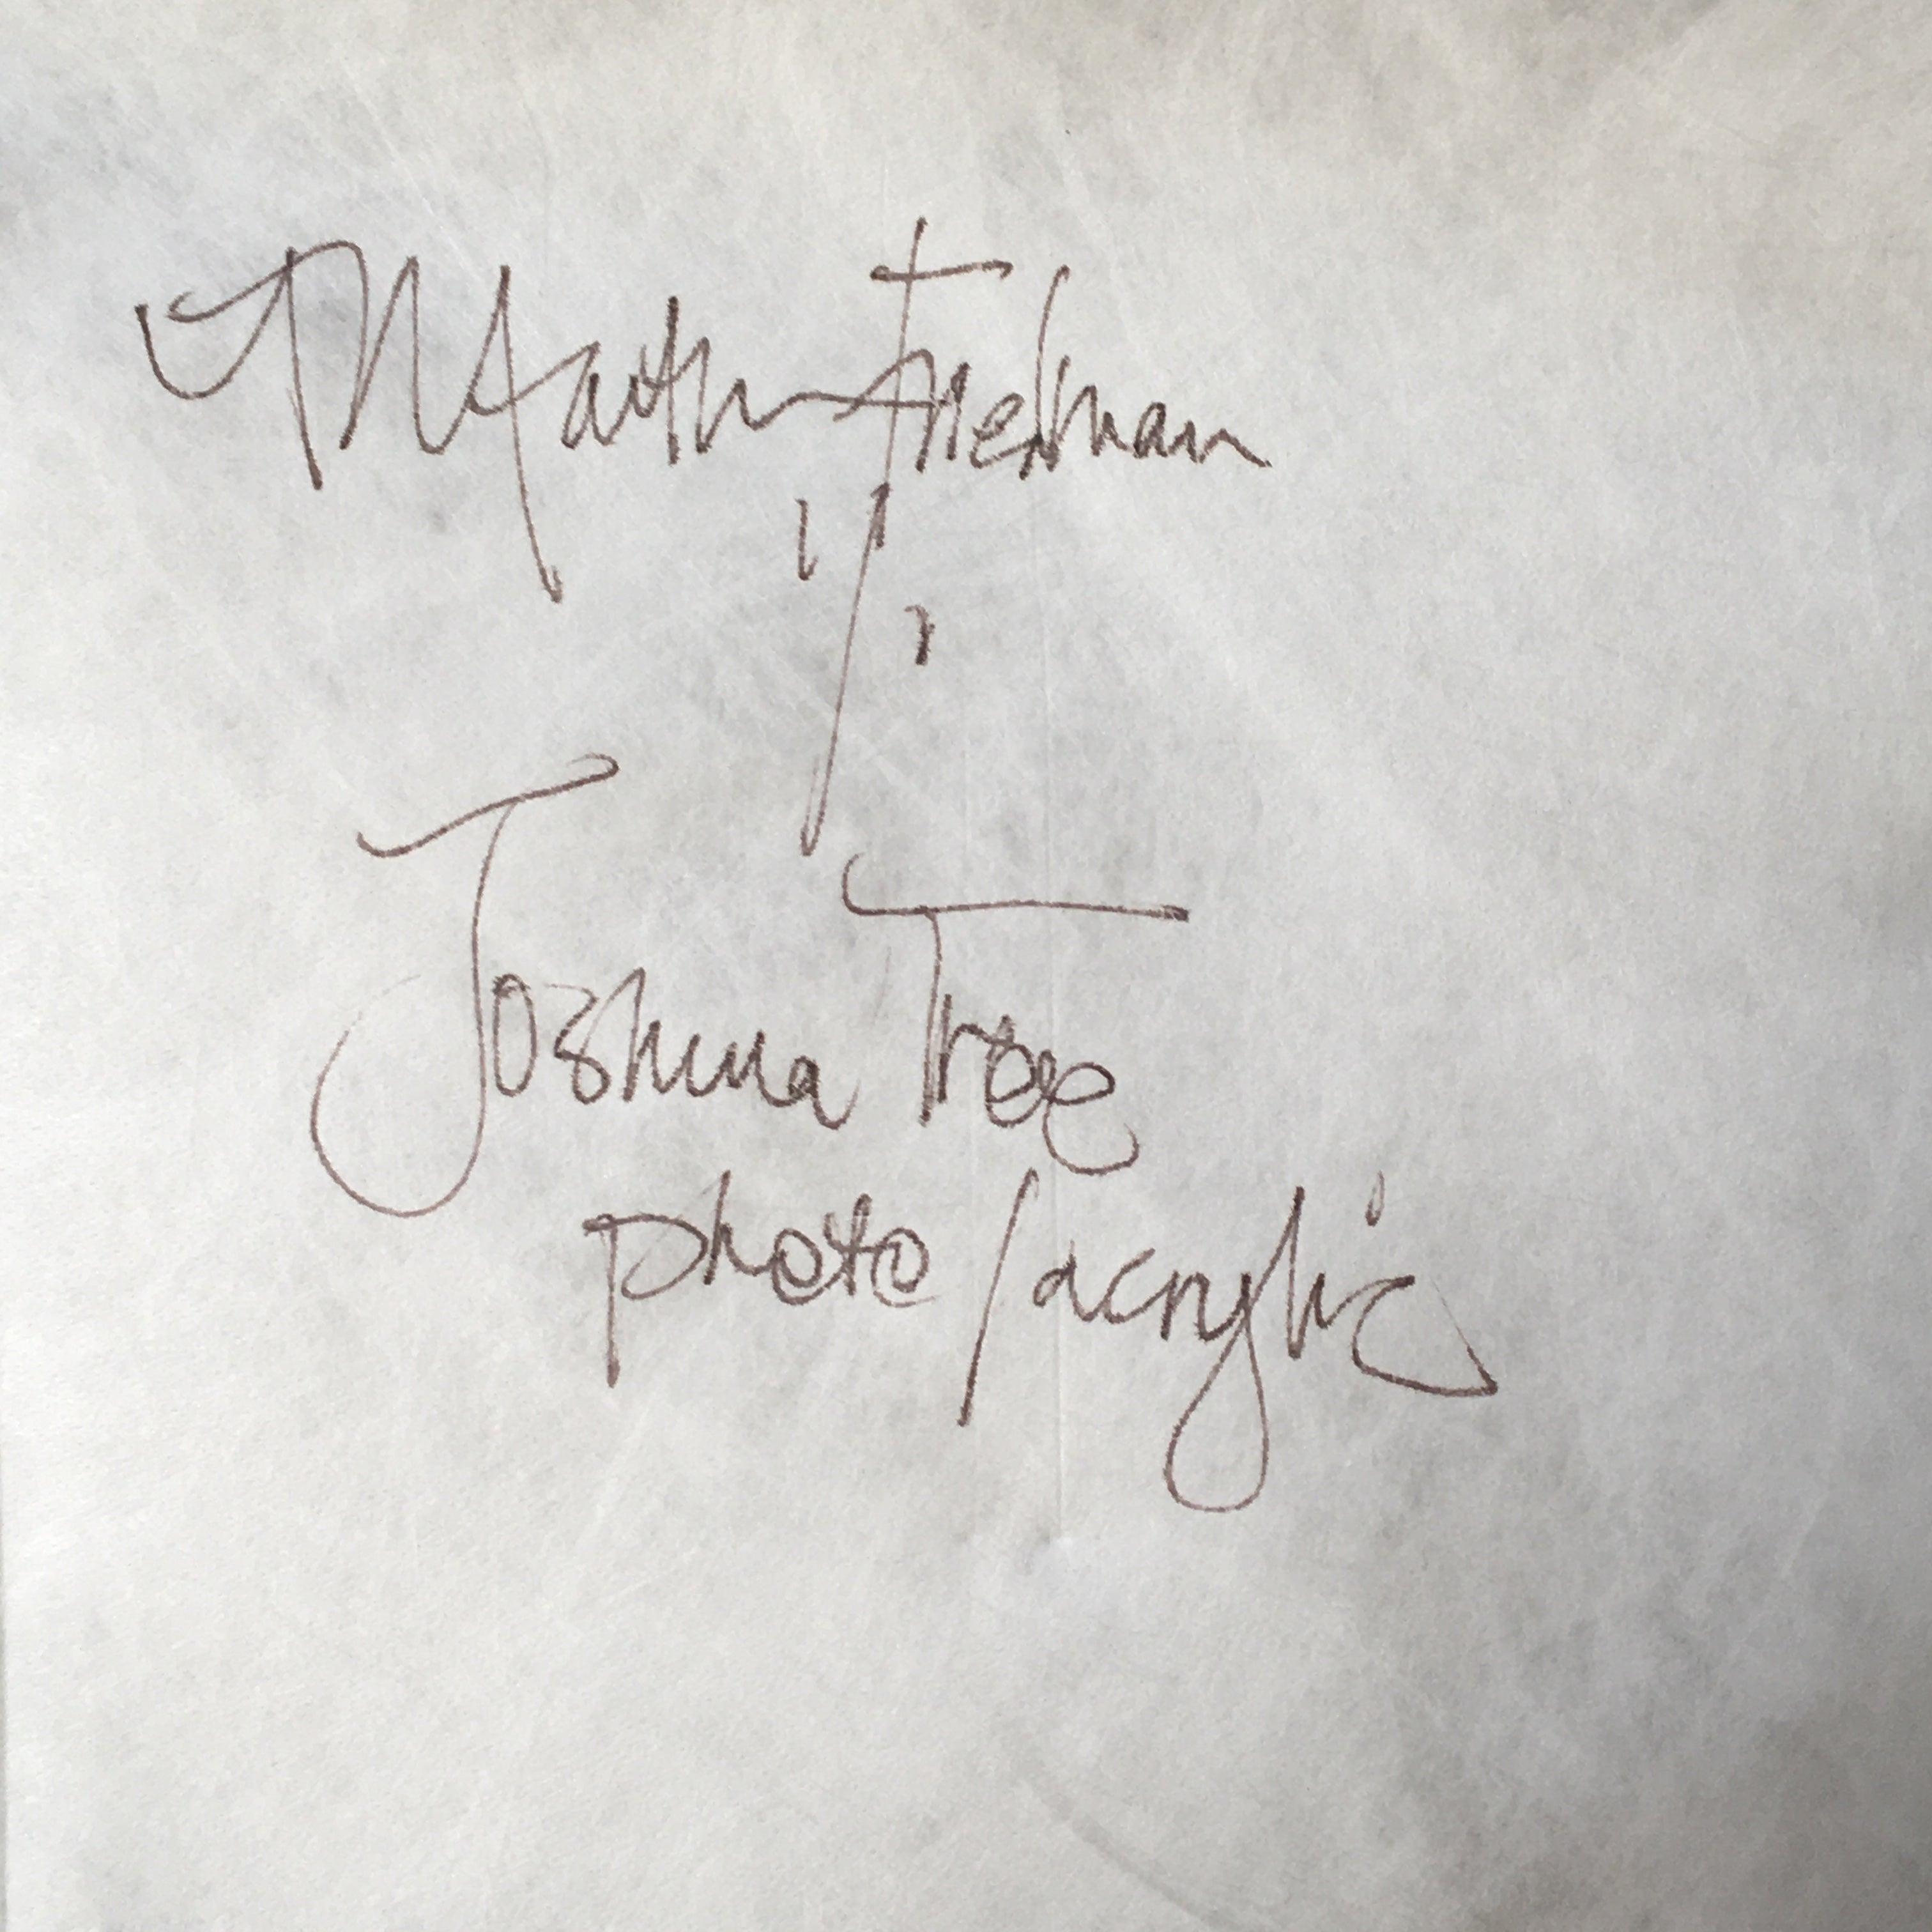 Friedman
Joshua Tree
photo/acrylic